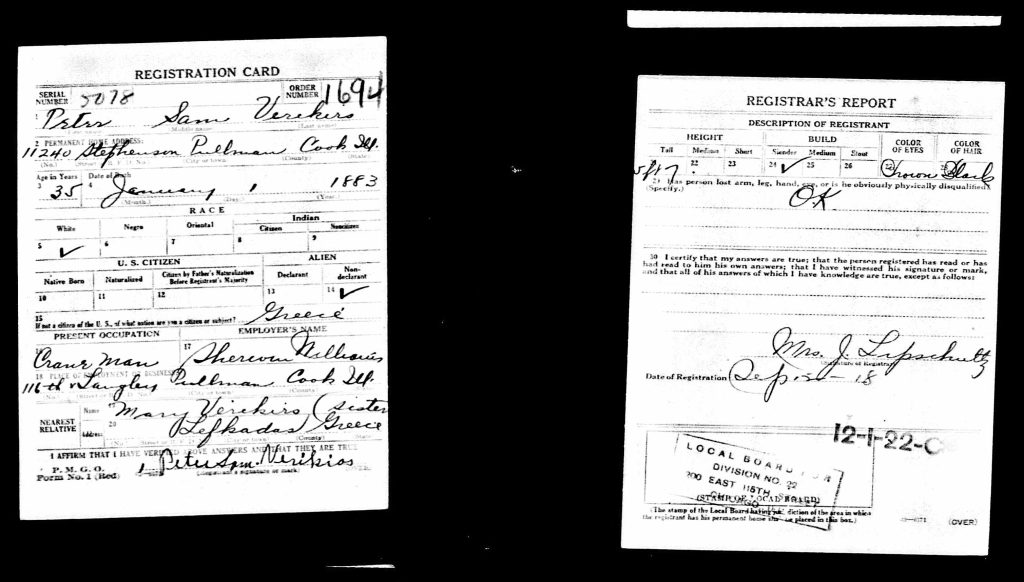 REGISTRATION CARD
SERIAL NUMBER 5078 ORDER NUMBER 1694
Peter Sam Verekirs
2 PERMANENT HOME ADDRESS:
11240 Stephenson Pullman Cook Ill.
(No.) (City or town) (County) (State)
Age in Years Date of Birth
3 35 4 January 1 1883
(Month.) (Day.) (Year.)
RACE
White Negro Oriental Indian
Citizen Noncitizen
5 ✓ 6 7 8 9
U. S. CITIZEN ALIEN
Native Born Naturalized Citizen by Father's Naturalization Before Registrant's Majority Declarant Non-declarant
10 11 12 13 14 ✓
15
If not a citizen of the U. S., of what nation are you a citizen or subject? Greece
PRESENT OCCUPATION EMPLOYER'S NAME
16 Crane Man 17 Sherwin Williams
18 PLACE OF EMPLOYMENT OR BUSINESS:
116th & Langley Pullman Cook Ill.
NEAREST RELATIVE Name 19 Mary Verekirs (sister
Address 20 Lefkadas Greece
I AFFIRM THAT I HAVE VERIFIED ABOVE ANSWERS AND THAT THEY ARE TRUE
P. M. G. O.
Form No. 1 (Red) Peter Sam Verikios
(Registrant's signature or mark)
REGISTRAR'S REPORT
DESCRIPTION OF REGISTRANT
HEIGHT BUILD COLOR OF EYES COLOR OF HAIR
Tall Medium Short Slender Medium Stout
5 ft 7 22 23 24 ✓ 25 26 Brown Black
29 Has person lost arm, leg, hand, eye, or is he obviously physically disqualified?
(Specify.) O.K
30 I certify that my answers are true; that the person registered has read or has
had read to him his own answers; that I have witnessed his signature or mark,
and that all of his answers of which I have knowledge are true, except as follows:
Mrs. J. Lipschultz
(Signature of Registrar)
Date of Registration Sep 18
12-1-22-C
LOCAL BOARD FOR
DIVISION NO. 22
200 EAST 115TH STREET
CHICAGO
(STAMP OF LOCAL BOARD)
(The stamp of the Local Board having jurisdiction of the area in which
the registrant has his permanent home shall be placed in this box.)
(OVER)